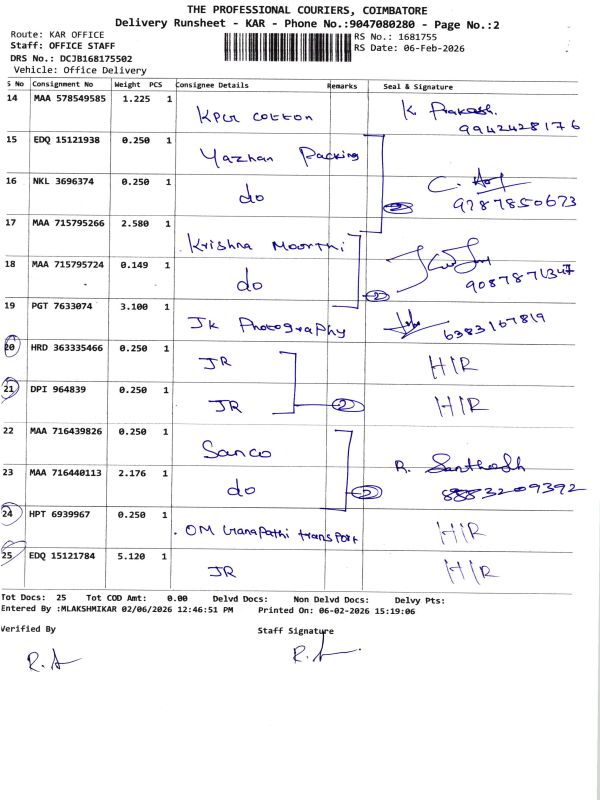 THE PROFESSIONAL COURIERS, COIMBATORE
Delivery Runsheet - KAR - Phone No.:9047080280 - Page No.:2
Route: KAR OFFICE
Staff: OFFICE STAFF
DRS No.: DCJB168175502
Vehicle: Office Delivery
RS No.: 1681755
RS Date: 06-Feb-2026
S No Consignment No Weight PCS Consignee Details Remarks Seal & Signature
14 MAA 578549585 1.225 1 KPR cotton K Prakash. 9942428176
15 EDQ 15121938 0.250 1 Yazhan Packing
16 NKL 3696374 0.250 1 do 2 C. 9787850673
17 MAA 715795266 2.580 1 Krishna Moorthi
18 MAA 715795724 0.149 1 do 2 9087871347
19 PGT 7633074 3.100 1 JK Photography 6383167819
20 HRD 363335466 0.250 1 JR HIR
21 DPI 964839 0.250 1 JR 2 HIR
22 MAA 716439826 0.250 1 Sanco
23 MAA 716440113 2.176 1 do 2 R. Santhosh
24 HPT 6939967 0.250 1 OM Ganapathi transport HIR
25 EDQ 15121784 5.120 1 JR HIR
Tot Docs: 25 Tot COD Amt: 0.00 Delvd Docs: Non Delvd Docs: Delvy Pts:
Entered By :MLAKSHMIKAR 02/06/2026 12:46:51 PM Printed On: 06-02-2026 15:19:06
Verified By Staff Signature